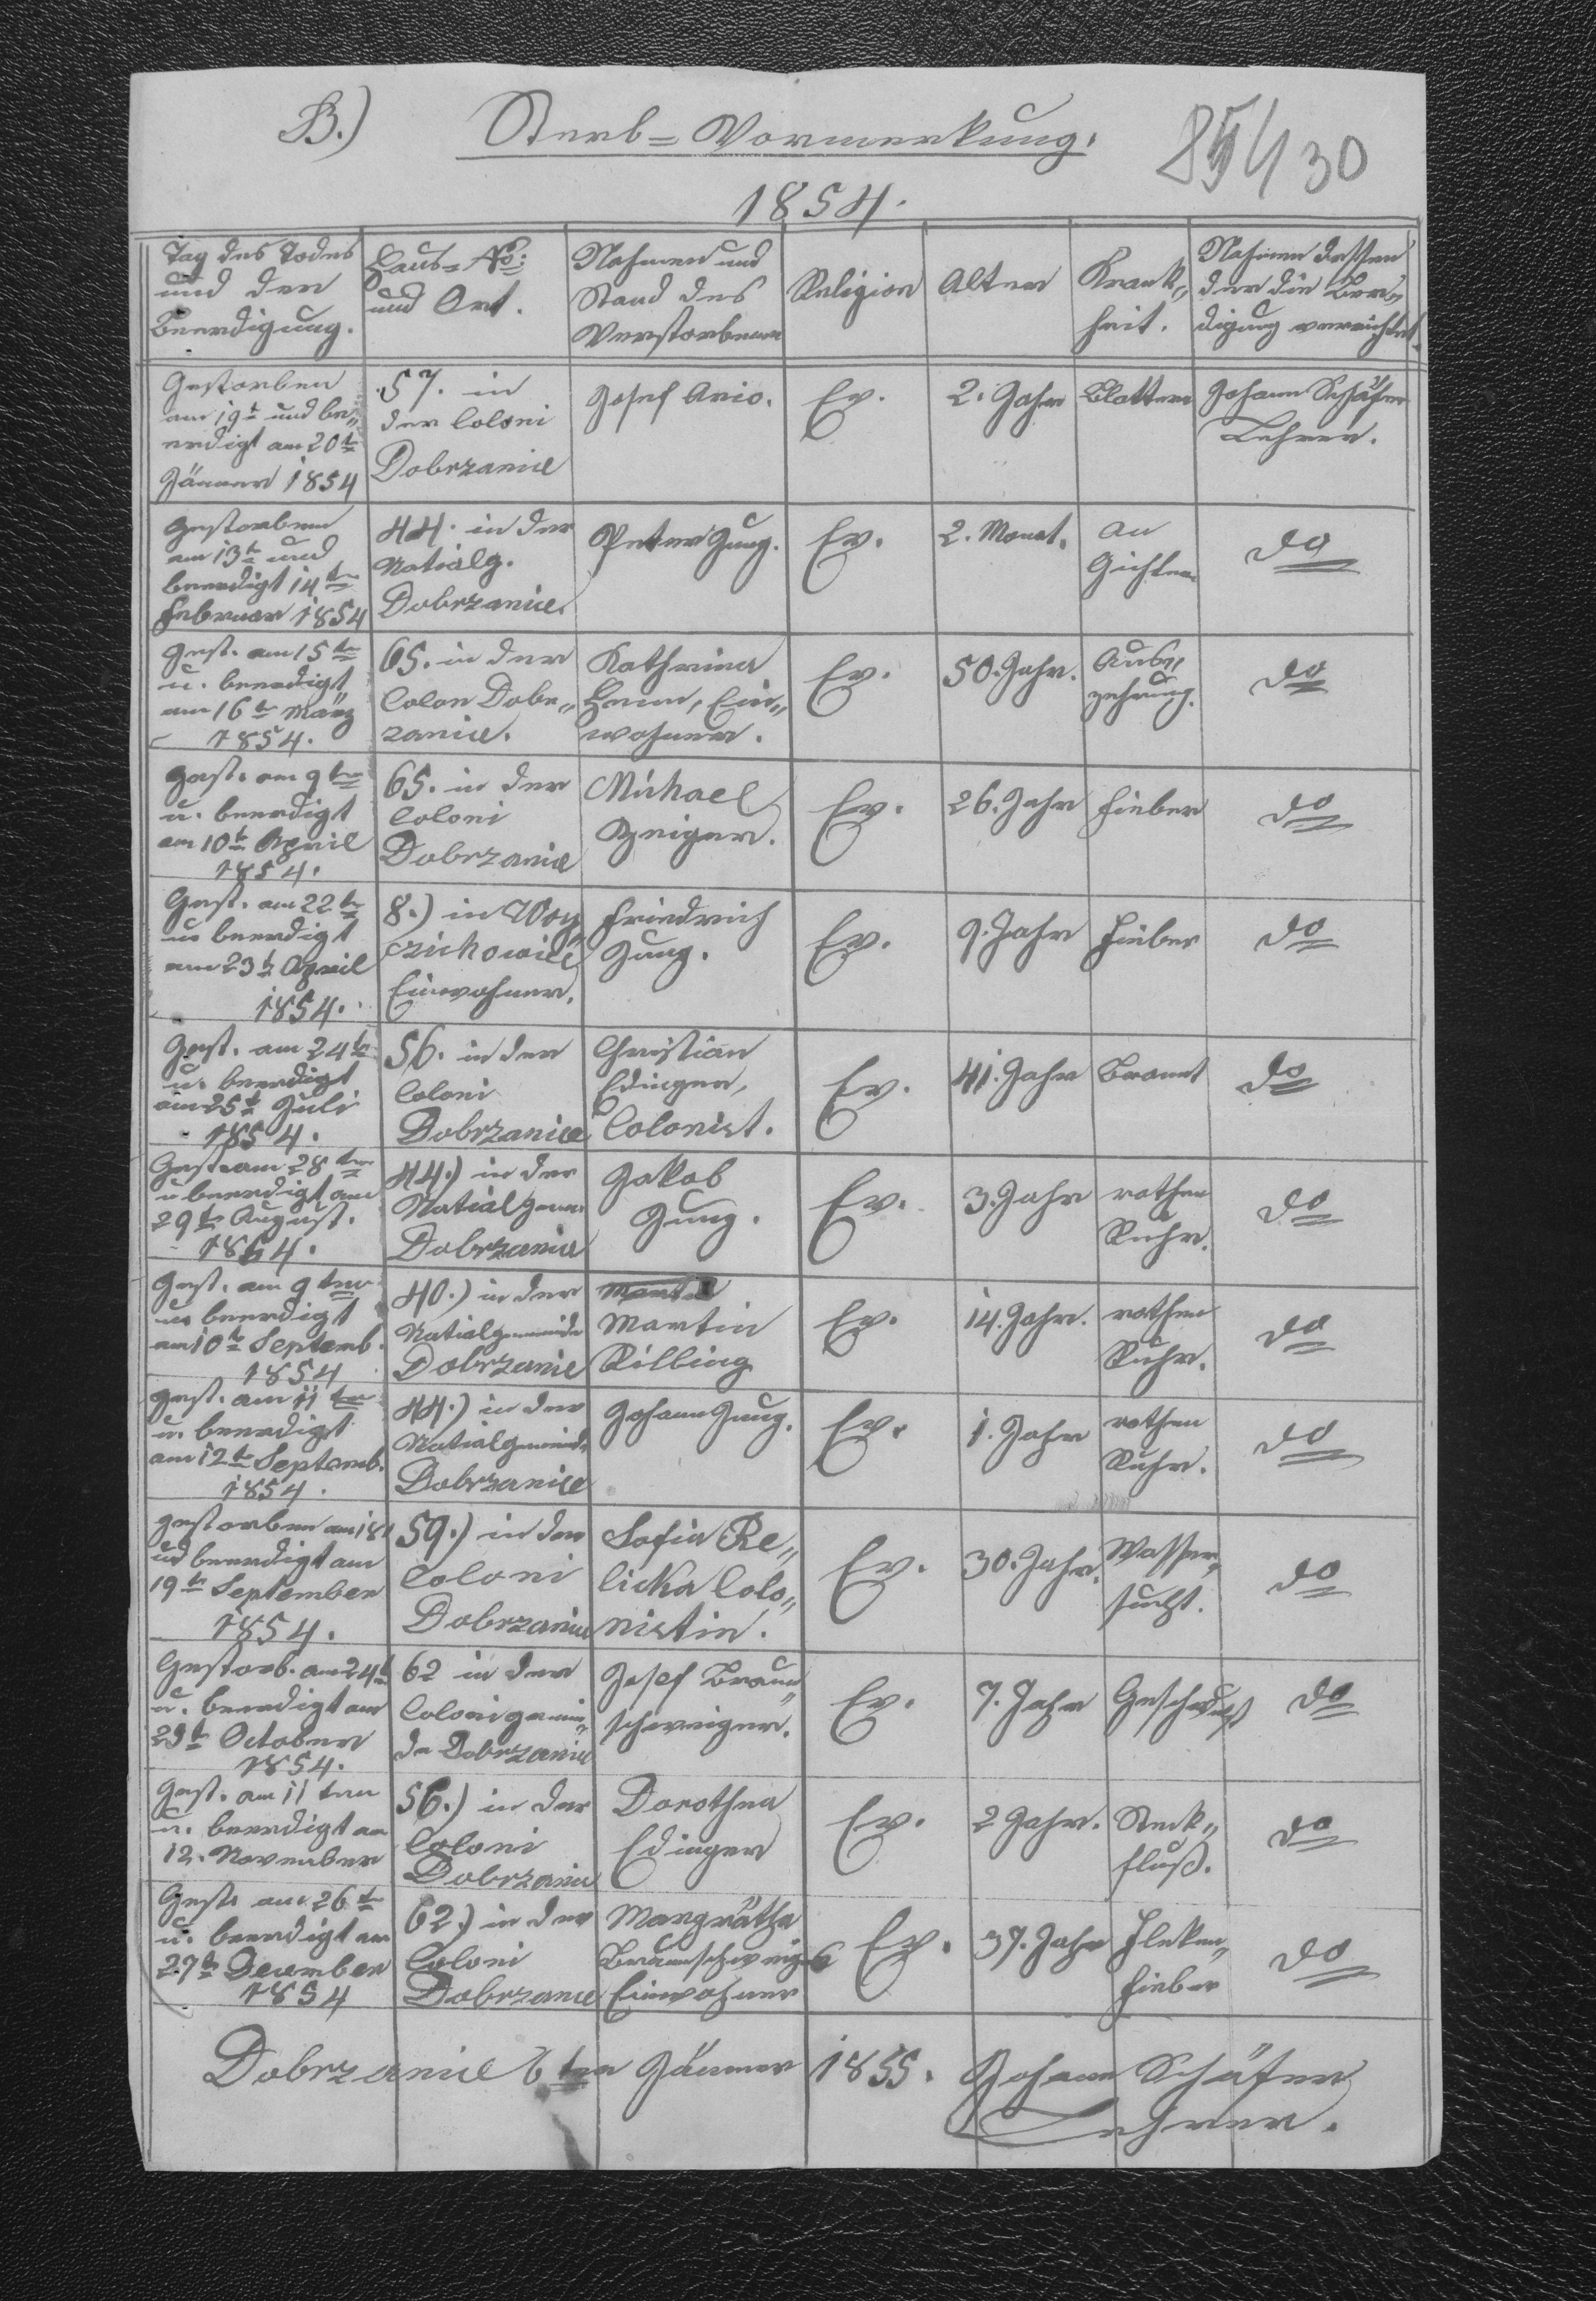 B.) Sterb=Vormerkung. 854 30
1854.
Tag des Todes
und der
Beerdigung.
Haus=No:
und Ort.
Nahmen und
Stand des
Verstorbenen
Religion
Alter
Krank„
heit.
Nahmen dessen
der die Beer„
digung verrichtet.
Gestorben
am 19t und be„
erdigt am 20t
Jänner 1854
57. in
der Coloni
Dobrzanice
Josef Ario.
Ev.
2. Jahr
Blattern
Johann Schäfer
Lehrer.
Gestorben
am 13t und
beerdigt 14ten
Februar 1854
44. in der
Natialg.
Dobrzanice.
Peter Jung.
Ev.
2. Monat.
an
Gichter
do
Gest. am 15ten
u. beerdigt
am 16t März
1854.
65. in der
Colon Dobr„
zanice.
Kathrina
Henn, Ein„
wohner.
Ev.
50. Jahr.
Aus„
zehrung.
do
Gest. am 9ten
u. beerdigt
am 10t April
1854.
65. in der
Coloni
Dobrzanice
Michael
Ev.
26. Jahr
Fieber
do
Gest. am 22t
u. beerdigt
am 23t April
1854.
8.) in Woy„
czichowice
Einwohner.
Friedrich
Jung.
Ev.
9. Jahr
Fieber
do
Gest. am 24t
u. beerdigt
am 25t Juli
1854.
56. in der
Coloni
Dobrzanice
Christian
Edinger,
Colonist.
Ev.
41. Jahr
Brant
do
Gest. am 28ten
u beerdigt am
29t August.
1864.
44.) in der
Natialgem.
Dobrzanice
Jakob
Jung.
Ev.
3. Jahr
rothen
Ruhr.
do
Gest. am 9ten
u. beerdigt
am 10t Septemb.
1854
40.) in der
Natialgemeinde
Dobrzanice
Martin
Rilling
Ev.
14. Jahr.
rothen
Ruhr.
do
Gest. am 11ten
u. beerdigt
am 12t Septemb.
1854.
44.) in der
Natialgemeinde
Dobrzanice
Johann Jung.
Ev.
1. Jahr
rothen
Ruhr.
do
gestorben am 18t
ud beerdigt am
19t September
1854.
59.) in der
Coloni
Dobrzanice
Sofia Re„
licka Colo„
nistin.
Ev.
30. Jahr.
Wasser„
sucht.
do
Gestorb. am 24t
u. beerdigt am
October
1854.
62 in der
Colonigemein„
de Dobrzanice
Josef Braun„
schweiger.
Ev.
7. Jahr
Geschwulst
do
Gest. am 11ten
u. beerdigt am
12. November
56.) in der
Coloni
Dobrzanice
Dorothea
Edinger
Ev.
2 Jahr.
Steck„
fluß.
do
Gest. am 26t
u. beerdigt am
27t December
1854
62.) in der
Coloni
Dobrzanice
Margrätha
Braunschweiger
Einwohner
Ev.
37. Jahr
Fleken„
fieber
do
Dobrzanice 6ten Jänner 1855. Johann Schäfer
Lehrer.